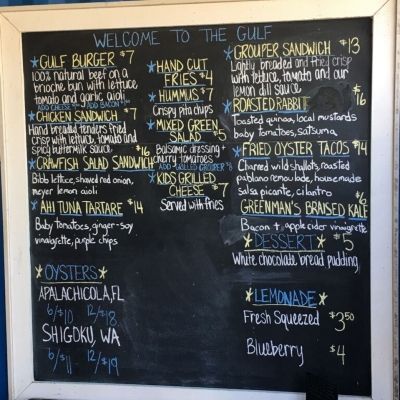 WELCOME TO THE GULF
GULF BURGER $7
100% natural beef on a
brioche bun with lettuce
tomato and garlic aioli
ADD CHEESE ADD BACON
CHICKEN SANDWICH $7
Hand breaded tenders fried
crisp with lettuce, tomato and
spicy buttermilk sauce
CRAWFISH SALAD SANDWICH $16
Bibb lettuce, shaved red onion,
meyer lemon aioli
AHI TUNA TARTARE $14
Baby tomatoes, ginger-soy
vinaigrette, purple chips
OYSTERS
APALACHICOLA, FL
6/$10 12/$18
SHIGOKU, WA
6/$11 12/$19
HAND CUT
FRIES $4
HUMMUS $7
Crispy pita chips
MIXED GREEN
SALAD $5
Balsamic dressing +
cherry tomatoes
ADD GRILLED GROUPER $8
KIDS GRILLED
CHEESE $7
Served with fries
GROUPER SANDWICH $13
Lightly breaded and fried crisp
with lettuce, tomato and our
lemon dill sauce
ROASTED RABBIT $16
Toasted quinoa, local mustards
baby tomatoes, satsuma
FRIED OYSTER TACOS $14
Charred wild shallots, roasted
poblano remoulade, housemade
salsa picante, cilantro
GREENMAN'S BRAISED KALE $6
Bacon + apple cider vinaigrette
DESSERT $5
White chocolate bread pudding
LEMONADE
Fresh Squeezed $3.50
Blueberry $4